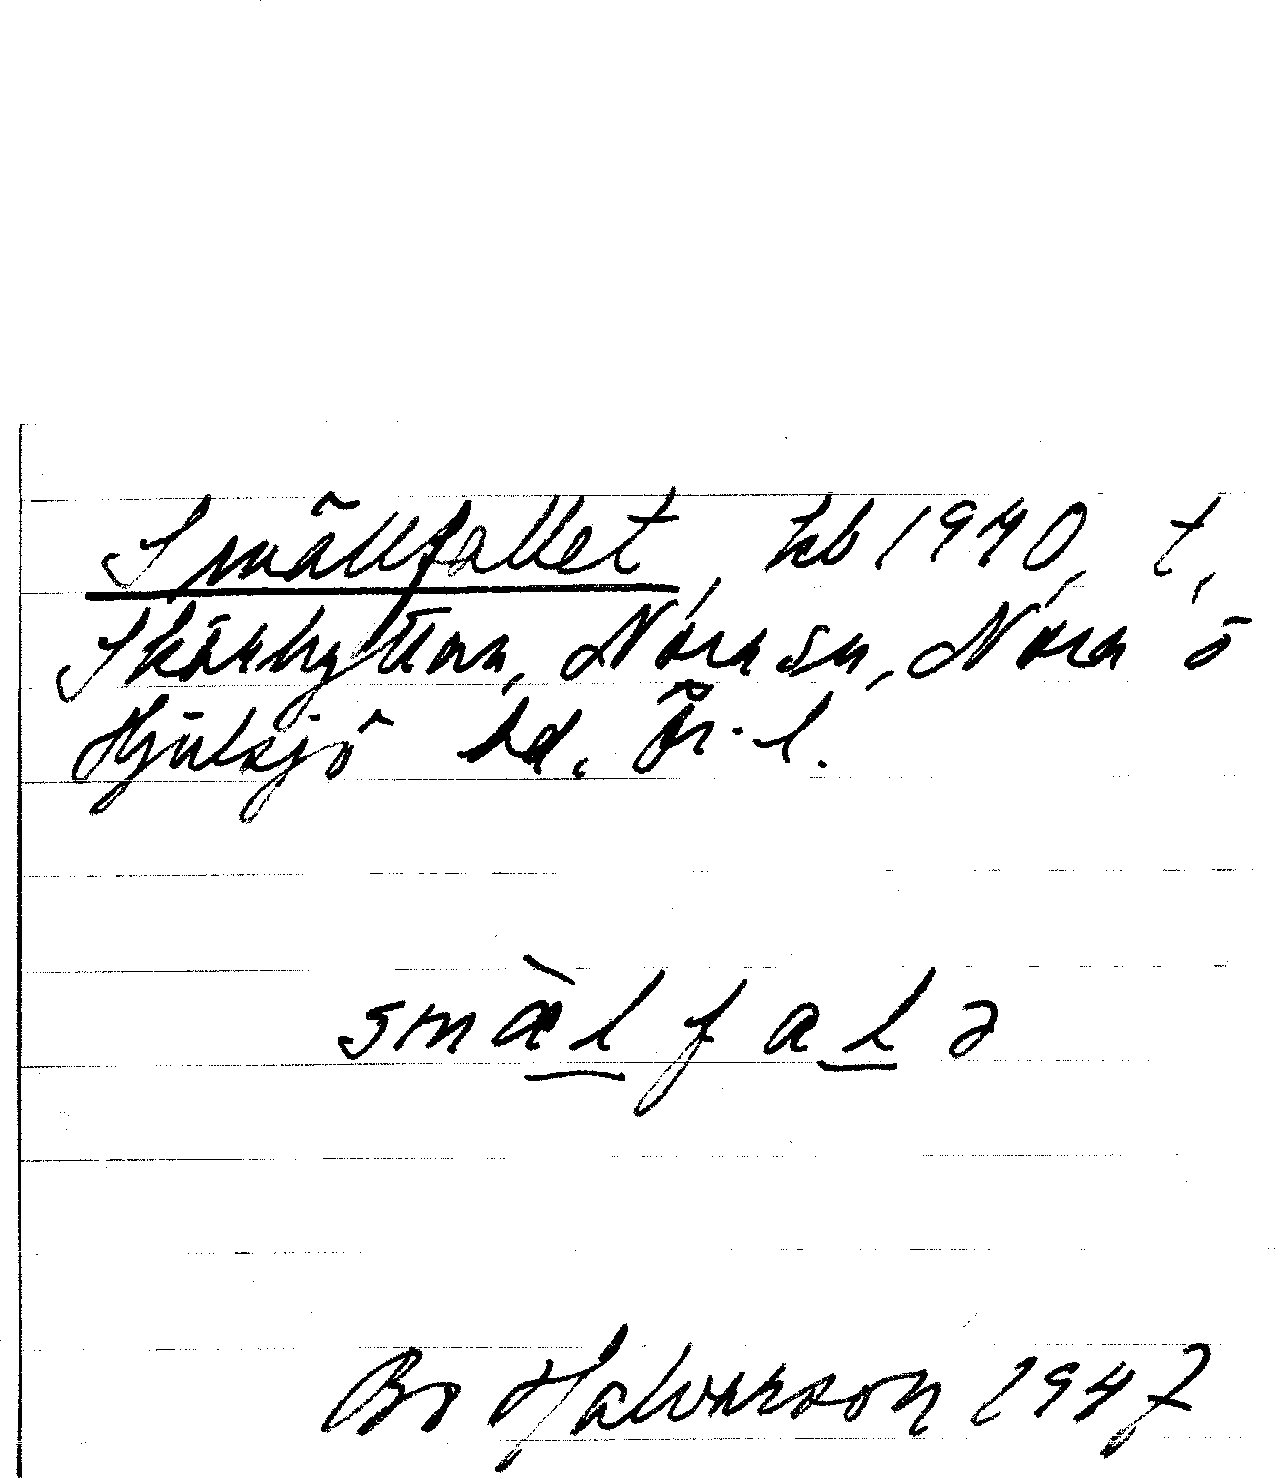 Smällfallet, kb 1940, t,
Skärhyttan, Nora sn, Nora o
Hjulsjö hd. Ör. l.
smæ̀lfalə
Bo Halvarson 1947